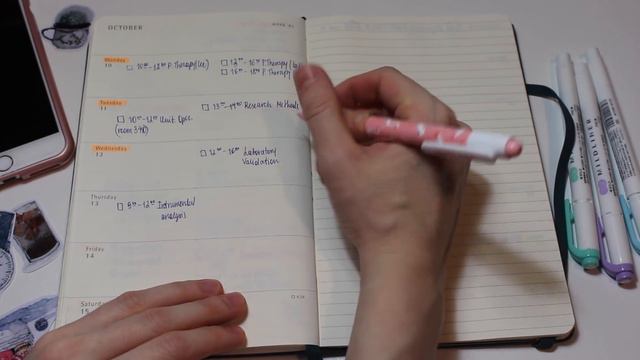 OCTOBER
WEEK 41
Monday
10
10⁰⁰-12⁰⁰ P. Therapy (lec)
12⁰⁰-16⁰⁰ P. Therapy (lab)
16⁰⁰-18⁰⁰ P. Therapy
Tuesday
11
10⁰⁰-12⁰⁰ Unit Oper.
(room 340)
13⁰⁰-14⁰⁰ Research Methods
Wednesday
12
12⁰⁰-16⁰⁰ Laboratory
Validation
Thursday
13
9⁰⁰-12⁰⁰ Instrumental
analysis
Friday
14
Saturday
15
MILDLINER